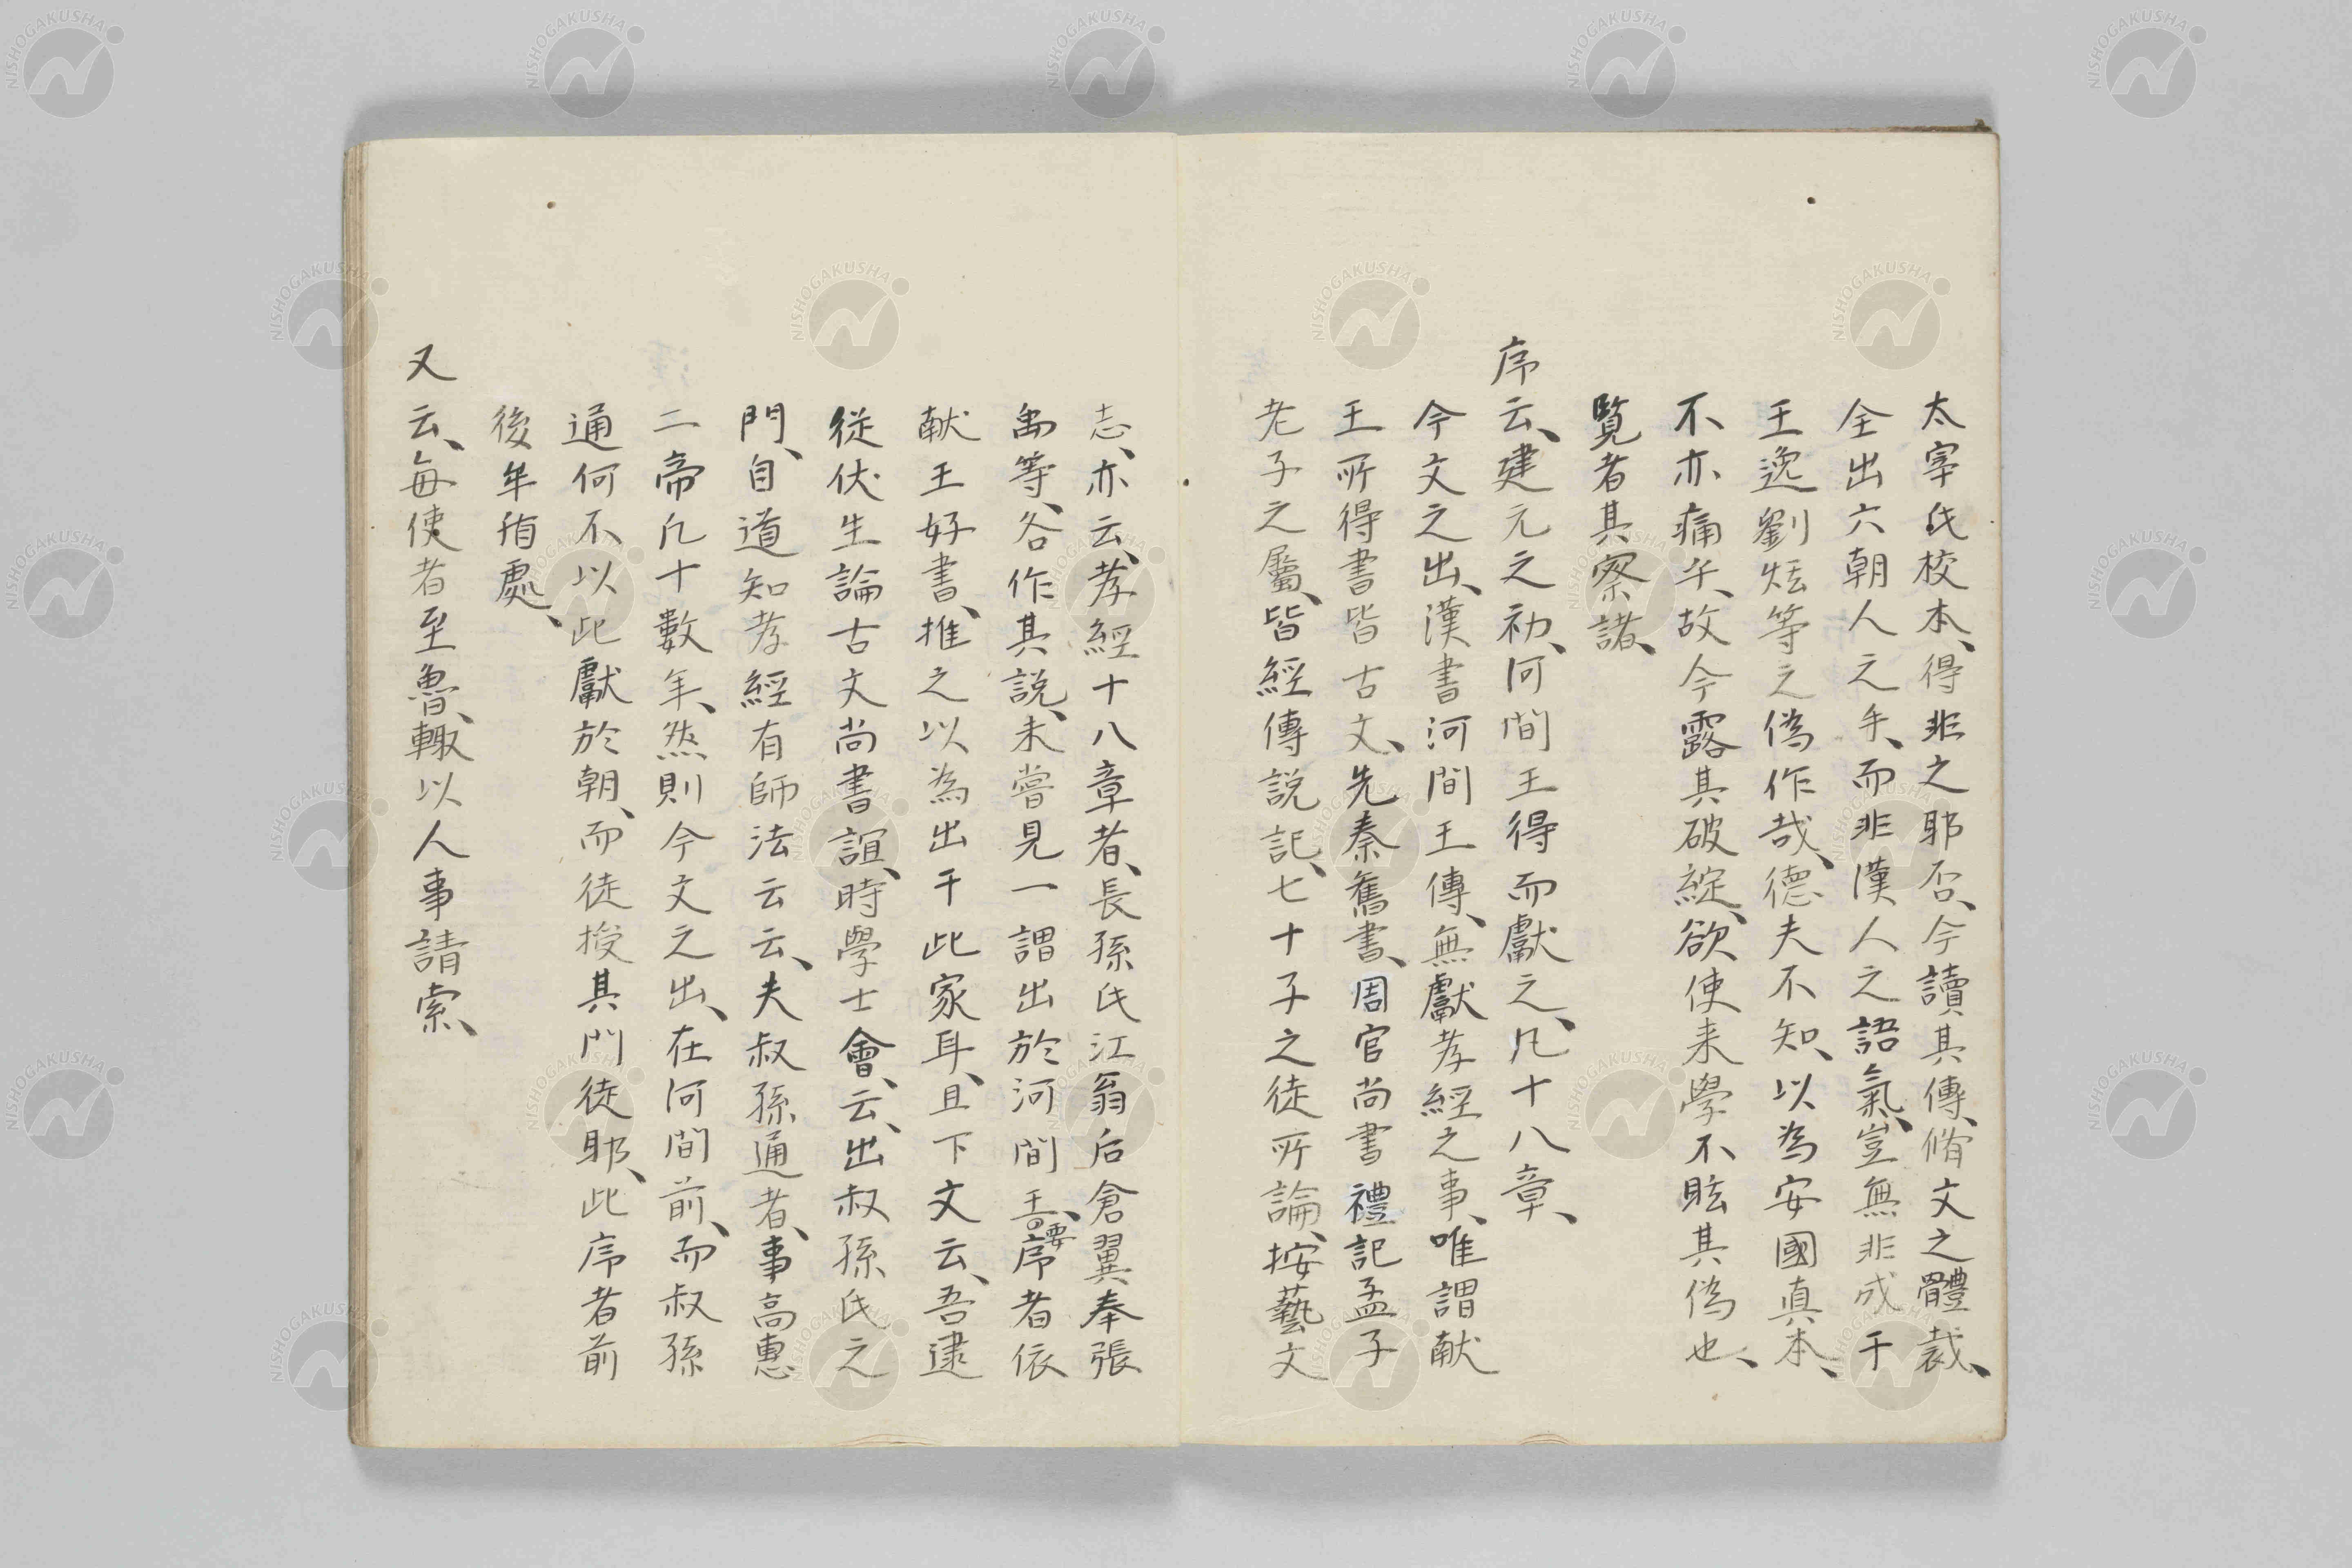 太宰氏校本、得非之耶否、今讀其傳、脩文之體裁、
全出六朝人之手、而非漢人之語氣、豈無非成于
王逸劉炫等之偽作哉、德夫不知、以為安國真本、
不亦痛乎、故今露其破綻、欲使来學不眩其偽也、
覧者其察諸、
序云、建元之初、河間王得而獻之、凡十八章、
今文之出、漢書河間王傳、無獻孝經之事、唯謂献
王所得書皆古文、先秦舊書、周官尚書禮記孟子
老子之屬、皆經傳説記、七十子之徒所論、按藝文
志、亦云、孝經十八章者、長孫氏江翁后倉翼奉張
禹等、各作其説、未嘗見一謂出於河間王、要序者依
献王好書、推之以為出于此家耳、且下文云、吾逮
従伏生論古文尚書誼、時學士會、云、出叔孫氏之
門、自道知孝經有師法云云、夫叔孫通者、事高惠
二帝凡十數年、然則今文之出、在河間前、而叔孫
通何不以此獻於朝、而徒授其門徒耶、此序者前
後年處、
又云、每使者至魯、輙以人事請索、